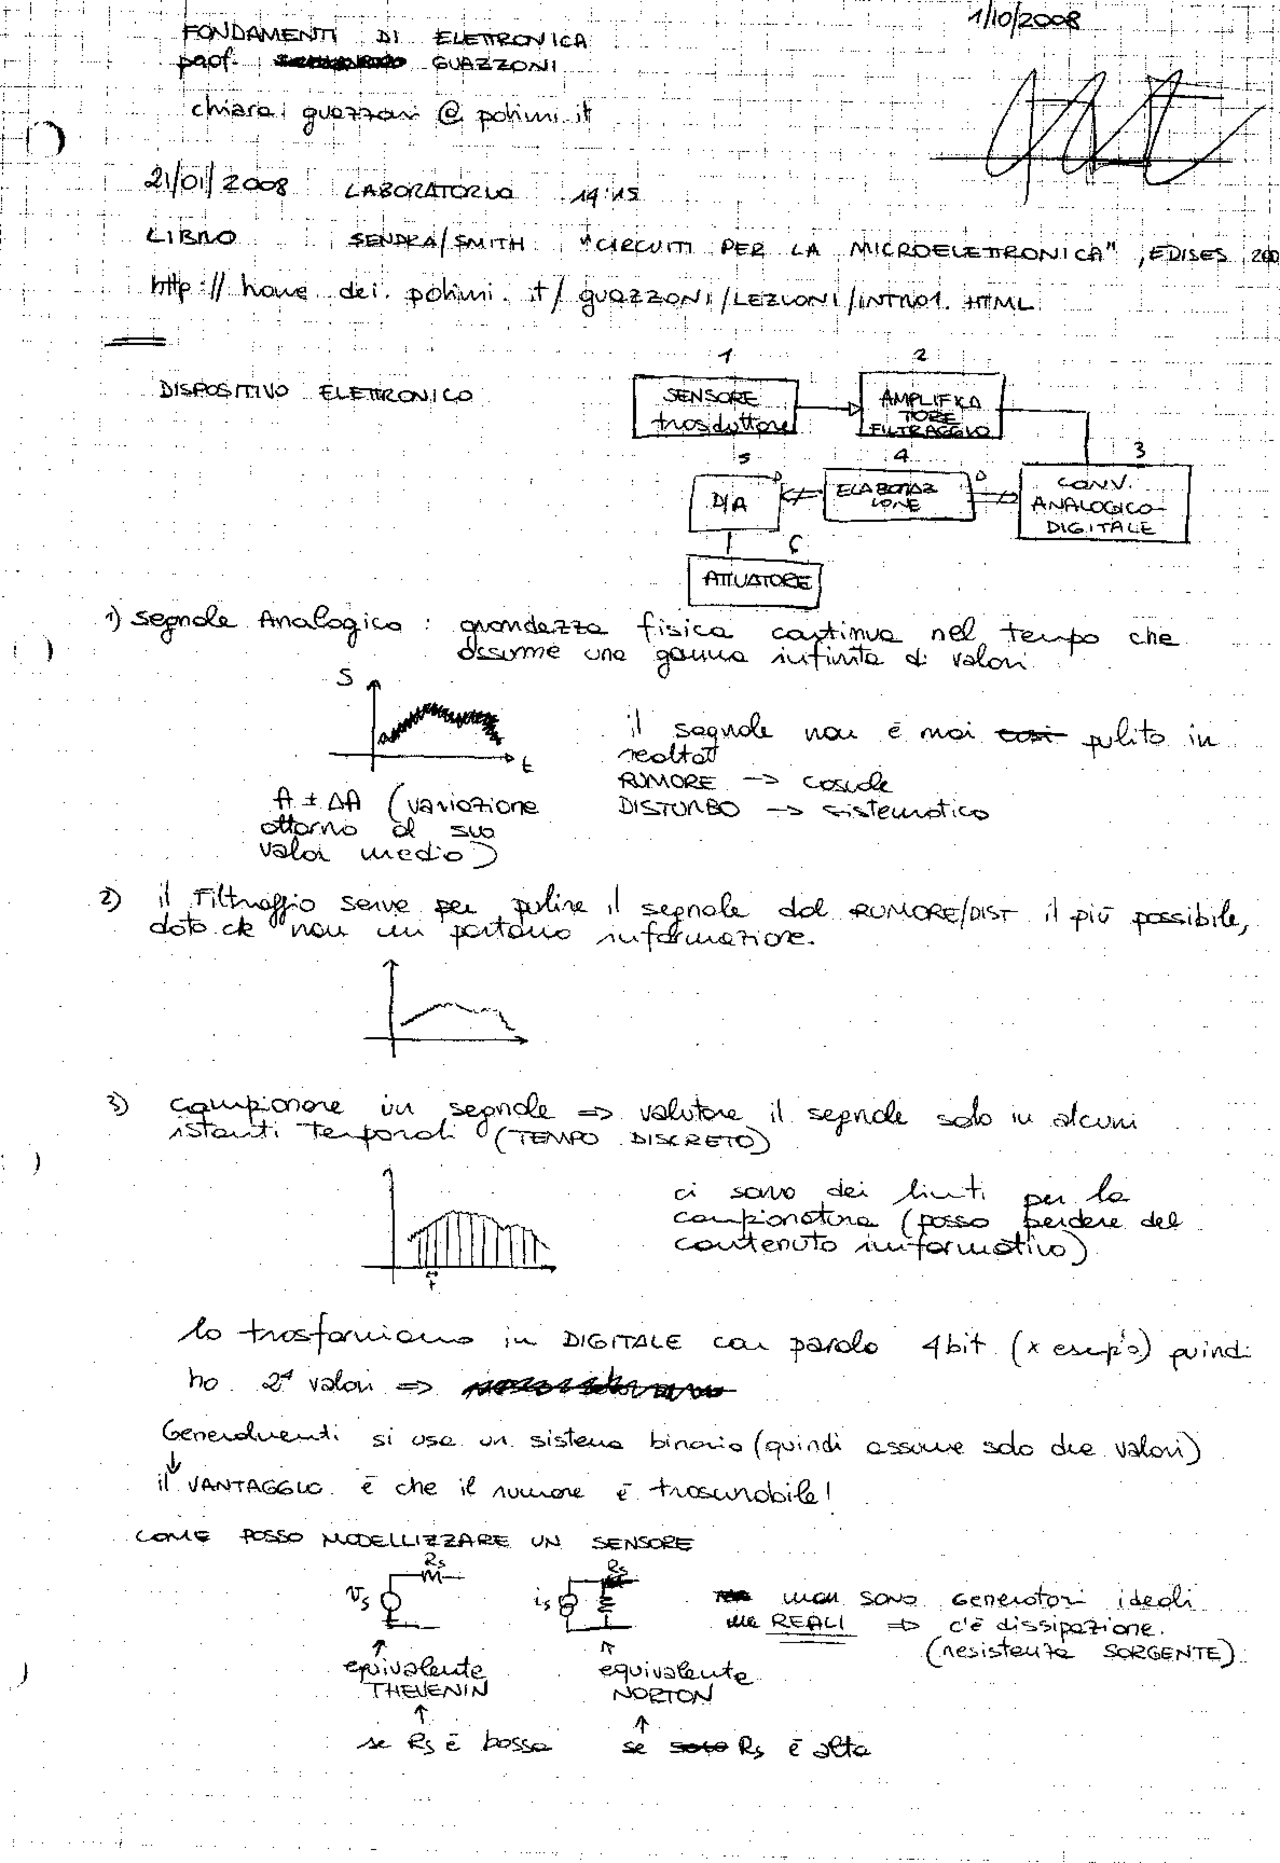 1/10/2008
FONDAMENTI DI ELETTRONICA
prof. GUAZZONI
chiara.guazzoni @ polimi.it
21/01/2008 LABORATORIO 14:15
LIBRO SENDRA/SMITH "CIRCUITI PER LA MICROELETTRONICA", EDISES
http://home.dei.polimi.it/guazzoni/LEZIONI/INTRO1.HTML
DISPOSITIVO ELETTRONICO
1
SENSORE
trasduttore
2
AMPLIFICA
TORE
FILTRAGGIO
3
CONV.
ANALOGICO-
DIGITALE
D
4
ELABORAZ
IONE
D
5
D/A
6
ATTUATORE
1) segnale Analogico : grandezza fisica continua nel tempo che
assume una gamma infinita di valori
S
t
A ± ΔA (variazione
attorno al suo
valor medio)
il segnale non è mai così pulito in
realtà
RUMORE -> casuale
DISTURBO -> sistematico
2) il Filtraggio serve per pulire il segnale dal RUMORE/DIST il più possibile,
dato che non mi portano informazione.
3) campionare un segnale => valutare il segnale solo in alcuni
istanti temporali (TEMPO DISCRETO)
ci sono dei limiti per la
campionatura (posso perdere del
contenuto informativo)
lo trasformiamo in DIGITALE con parola 4bit (x esempio) quindi
ho 2⁴ valori =>
Generalmenti si usa un sistema binario (quindi assume solo due valori)
il VANTAGGIO è che il rumore è trascurabile!
COME POSSO MODELLIZZARE UN SENSORE
Rs
Vs
Rs
is
non sono Generatori ideali
ma REALI => c'è dissipazione.
(resistenza SORGENTE)
equivalente
THEVENIN
equivalente
NORTON
se Rs è bassa
se solo Rs è alta